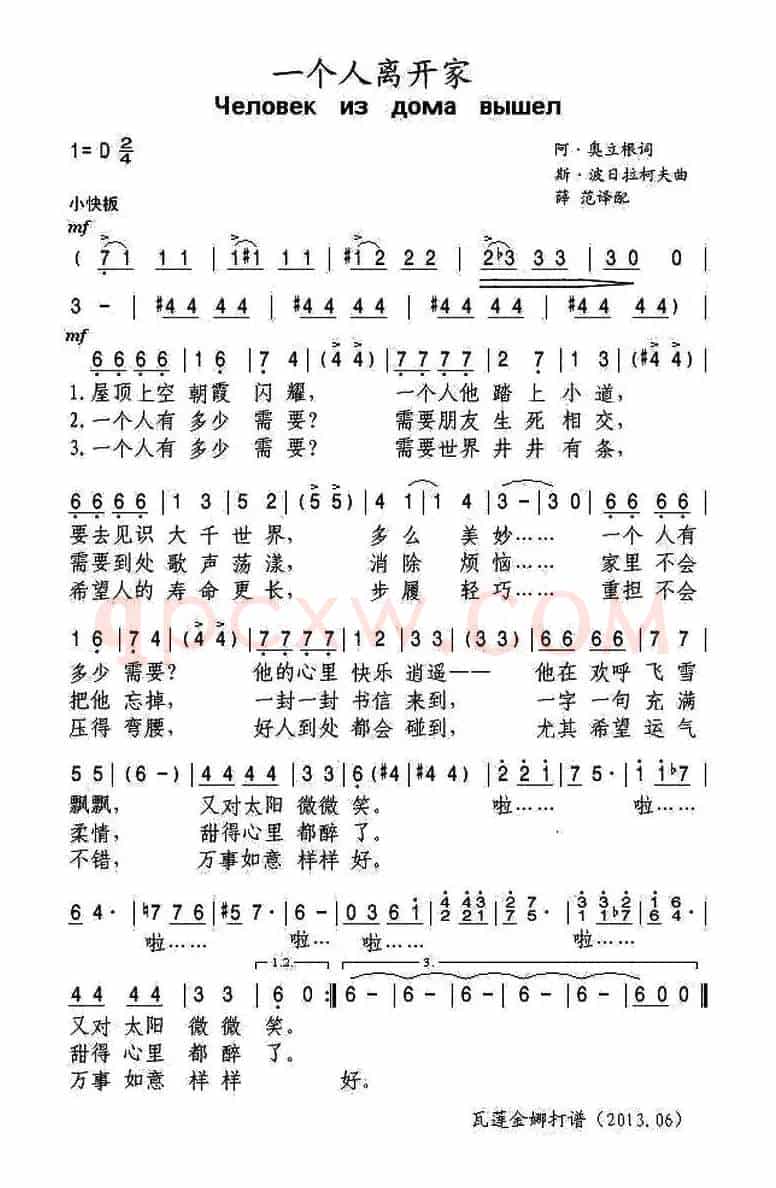 一个人离开家
Человек из дома вышел
1=D 2/4
阿·奥立根词
斯·波日拉柯夫曲
薛 范译配
小快板
mf
( 7 1 1 1 | 1 #1 1 1 | #1 2 2 2 | 2 b3 3 3 | 3 0 0 |
3 - | #4 4 4 4 | #4 4 4 4 | #4 4 4 4 | #4 4 4 4 )
mf
6 6 6 6 | 1 6 | 7 4 | (4 4) | 7 7 7 7 | 2 7 | 1 3 | (#4 4) |
1.屋顶上空 朝霞 闪耀， 一个人他 踏上 小道，
2.一个人有 多少 需要？ 需要朋友 生死 相交，
3.一个人有 多少 需要？ 需要世界 井井 有条，
6 6 6 6 | 1 3 | 5 2 | (5 5) | 4 1 | 1 4 | 3 - | 3 0 | 6 6 6 6 |
要去见识 大千 世界， 多么 美妙…… 一个 人有
需要到处 歌声 荡漾， 消除 烦恼…… 家里 不会
希望人的 寿命 更长， 步履 轻巧…… 重担 不会
qpcxw.com
1 6 | 7 4 | (4 4) | 7 7 7 7 | 1 2 | 3 3 | (3 3) | 6 6 6 6 | 7 7 |
多少 需要？ 他的心里 快乐 逍遥—— 他在 欢呼 飞雪
把他 忘掉， 一封一封 书信 来到， 一字 一句 充满
压得 弯腰， 好人到处 都会 碰到， 尤其 希望 运气
5 5 | (6 -) | 4 4 4 4 | 3 3 | 6 (#4 | #4 4) | 2 2 1 | 7 5· | 1 1 b7 |
飘飘， 又对太阳 微微 笑。 啦…… 啦……
柔情， 甜得心里 都醉 了。
不错， 万事如意 样样 好。
6 4· | ♮7 7 6 | #5 7· | 6 - | 0 3 6 1 | 4 4 3 | 3 2· | 3 3 2 | 1 6· |
啦…… 啦…… 啦……
1.2. 3.
4 4 4 4 | 3 3 | 6 0 :‖ 6 - | 6 - | 6 - | 6 - | 6 0 0 ‖
又对 太阳 微微 笑。
甜得 心里 都醉 了。
万事 如意 样样 好。
瓦莲金娜打谱（2013.06）